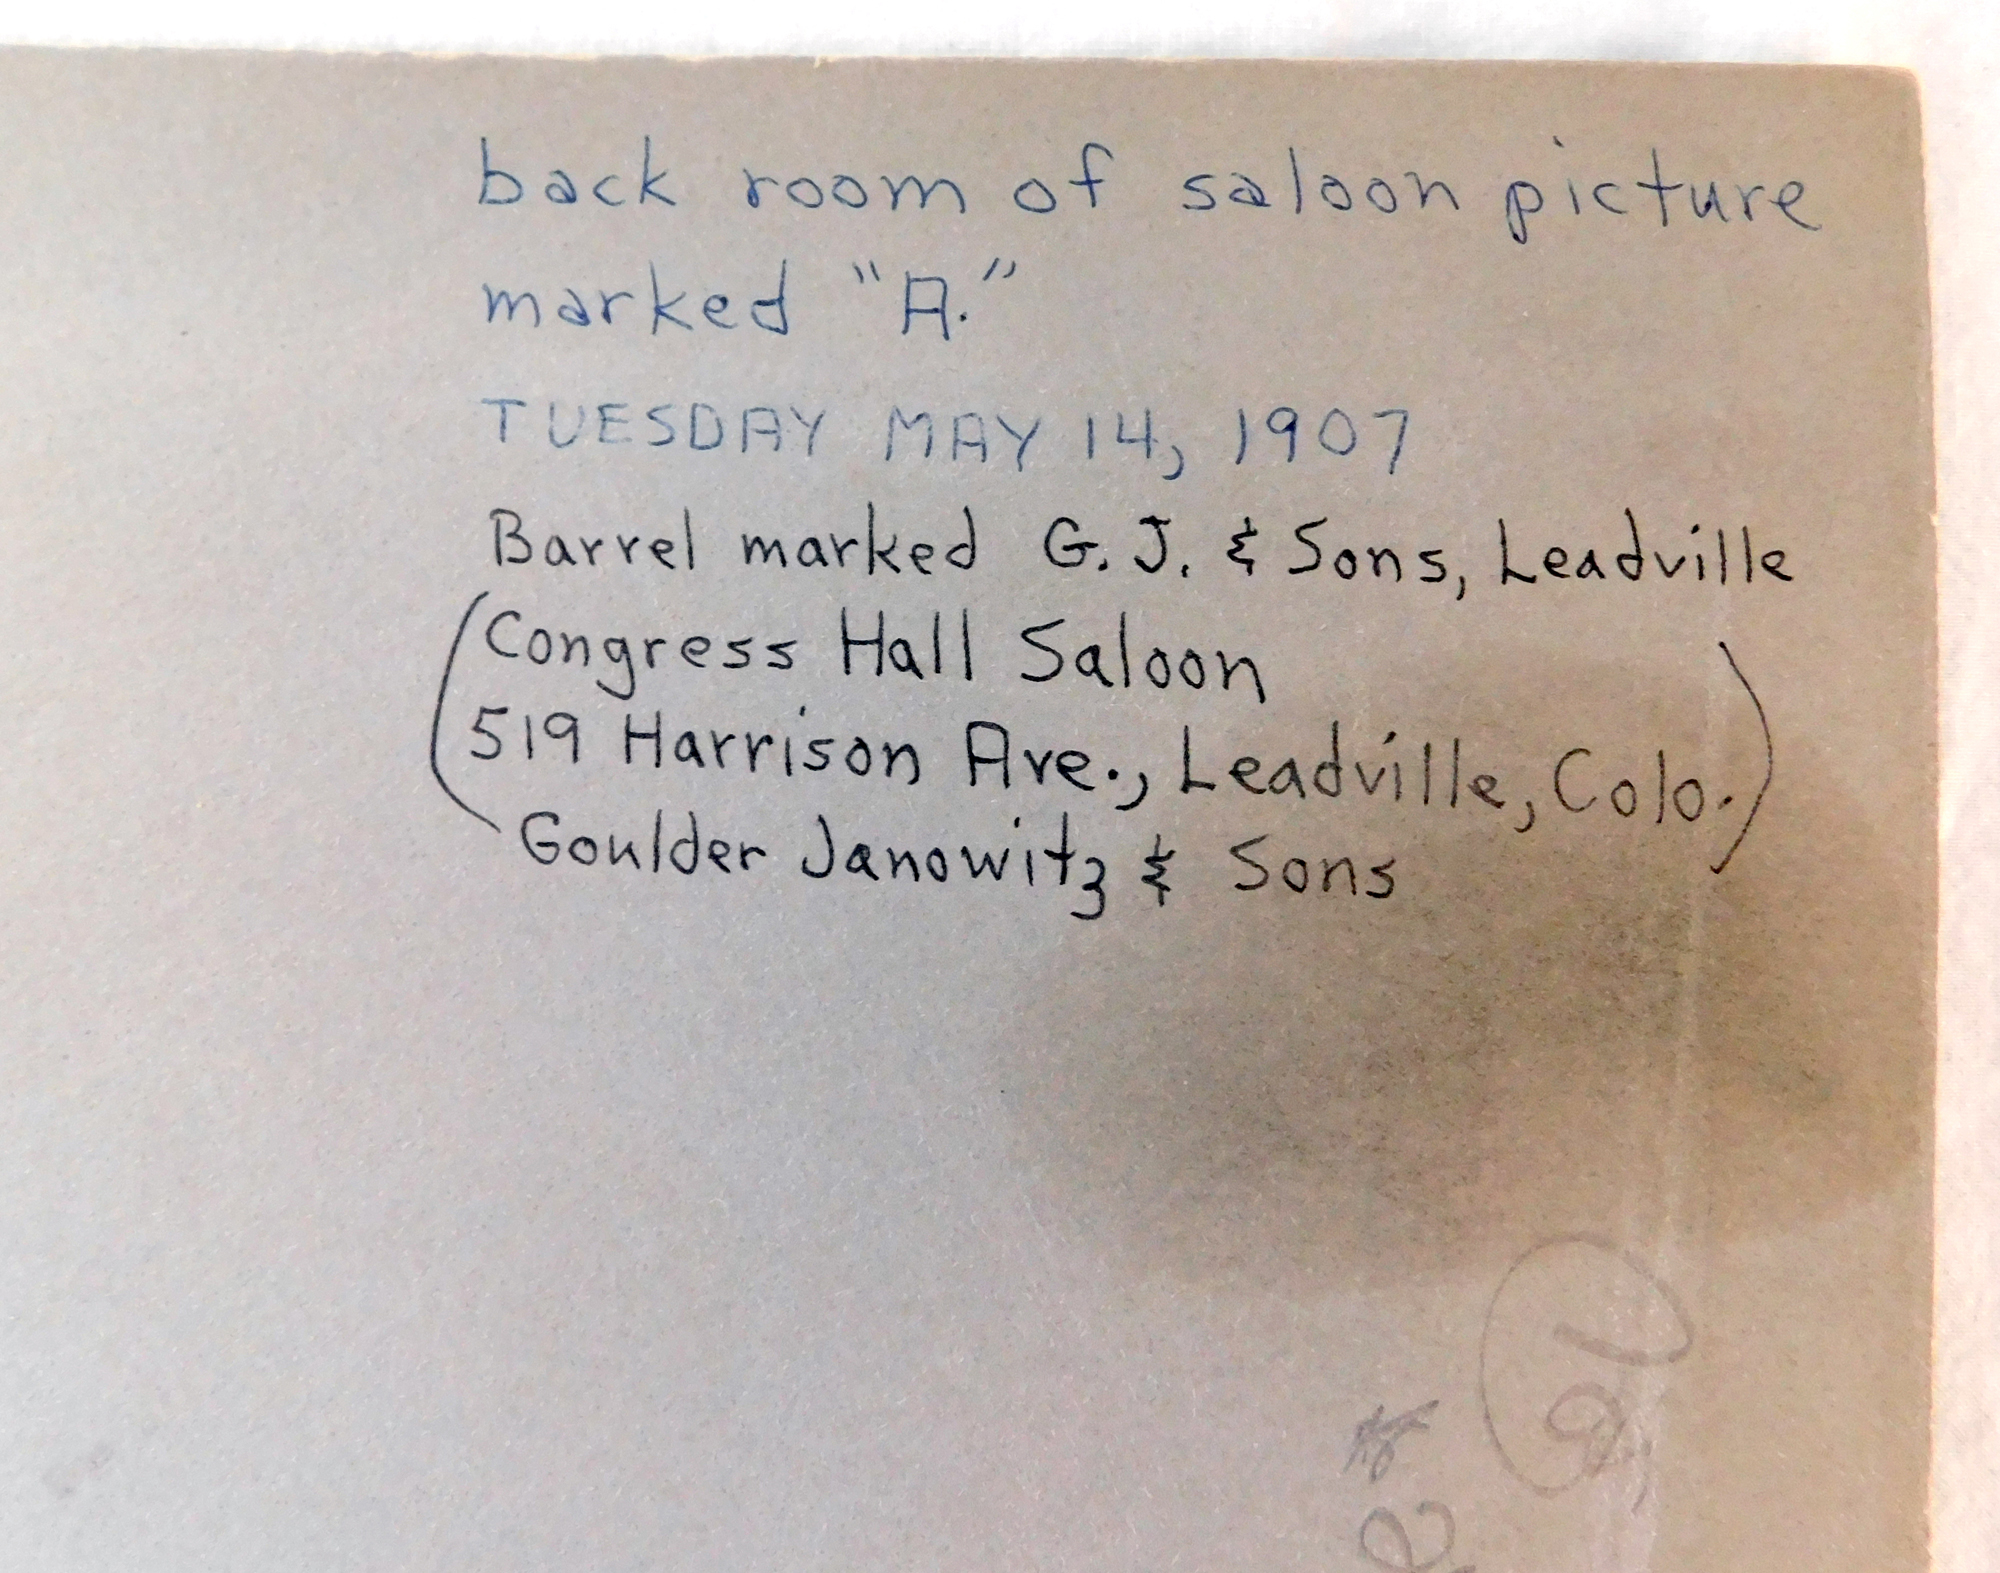 back room of saloon picture
marked "A."
TUESDAY MAY 14, 1907
Barrel marked G. J. & Sons, Leadville
(Congress Hall Saloon
519 Harrison Ave., Leadville, Colo.)
Goulder Janowitz & Sons